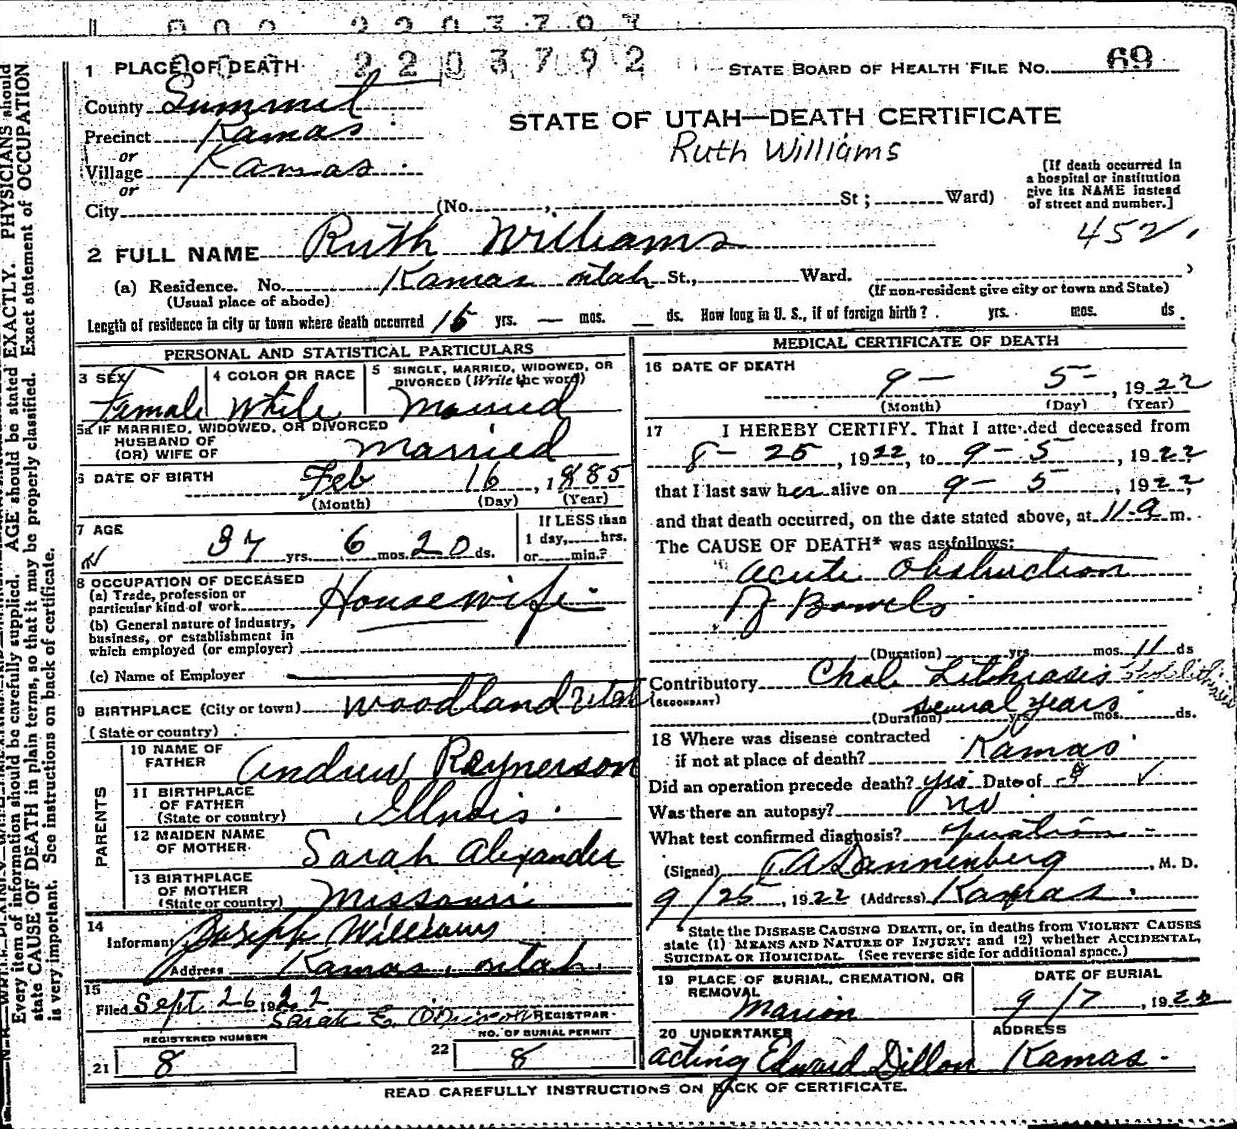 2203792
1 PLACE OF DEATH
STATE BOARD OF HEALTH FILE NO. 69
County Summit
STATE OF UTAH—DEATH CERTIFICATE
Precinct Kamas
Ruth Williams
or
Village Kamas
or
[If death occurred in
a hospital or institution
give its NAME instead
of street and number.]
City (No. , St; Ward)
452
2 FULL NAME Ruth Williams
(a) Residence. No. Kamas utah St., Ward.
(Usual place of abode)
(If non-resident give city or town and State)
Length of residence in city or town where death occurred 15 yrs. — mos. ds. How long in U. S., if of foreign birth? yrs. mos. ds.
PERSONAL AND STATISTICAL PARTICULARS
3 SEX Female
4 COLOR OR RACE White
5 SINGLE, MARRIED, WIDOWED, OR
DIVORCED (Write the word)
Married
5a IF MARRIED, WIDOWED, OR DIVORCED
HUSBAND OF
(OR) WIFE OF married
6 DATE OF BIRTH Feb 16, 1885
(Month) (Day) (Year)
7 AGE
37 yrs. 6 mos. 20 ds.
If LESS than
1 day, hrs.
or min.?
8 OCCUPATION OF DECEASED
(a) Trade, profession or
particular kind of work Housewife
(b) General nature of industry,
business, or establishment in
which employed (or employer)
(c) Name of Employer
9 BIRTHPLACE (City or town) Woodland Utah
(State or country)
PARENTS
10 NAME OF
FATHER Andrew Raynerson
11 BIRTHPLACE
OF FATHER
(State or country) Illnois
12 MAIDEN NAME
OF MOTHER Sarah Alexander
13 BIRTHPLACE
OF MOTHER
(State or country) Missouri
14
Informant Joseph Williams
Address Kamas, utah
15
Filed Sept. 26 1922
Sarah E. REGISTRAR
REGISTERED NUMBER
21 8
NO. OF BURIAL PERMIT
22 8
MEDICAL CERTIFICATE OF DEATH
16 DATE OF DEATH
9— 5—, 1922
(Month) (Day) (Year)
17 I HEREBY CERTIFY, That I attended deceased from
8— 25, 1922, to 9— 5, 1922
that I last saw her alive on 9— 5, 1922,
and that death occurred, on the date stated above, at 11 a m.
The CAUSE OF DEATH* was as follows:
acute Obstruction
of Bowels
(Duration) yrs. mos. 11 ds
Contributory Chole Lithiasis
(SECONDARY)
several years
(Duration) yrs. mos. ds.
18 Where was disease contracted
if not at place of death? Kamas
Did an operation precede death? yes Date of
Was there an autopsy? no
What test confirmed diagnosis? operation
(Signed) Dannenberg, M. D.
9/25, 1922 (Address) Kamas
State the DISEASE CAUSING DEATH, or, in deaths from VIOLENT CAUSES
state (1) MEANS AND NATURE OF INJURY; and (2) whether ACCIDENTAL,
SUICIDAL OR HOMICIDAL. (See reverse side for additional space.)
19 PLACE OF BURIAL, CREMATION, OR
REMOVAL
Marion
DATE OF BURIAL
9/7, 1922
20 UNDERTAKER
acting Edward Dillon
ADDRESS
Kamas
READ CAREFULLY INSTRUCTIONS ON BACK OF CERTIFICATE.
Every item of information should be carefully supplied. AGE should be stated EXACTLY. PHYSICIANS should
state CAUSE OF DEATH in plain terms, so that it may be properly classified. Exact statement of OCCUPATION
is very important. See instructions on back of certificate.